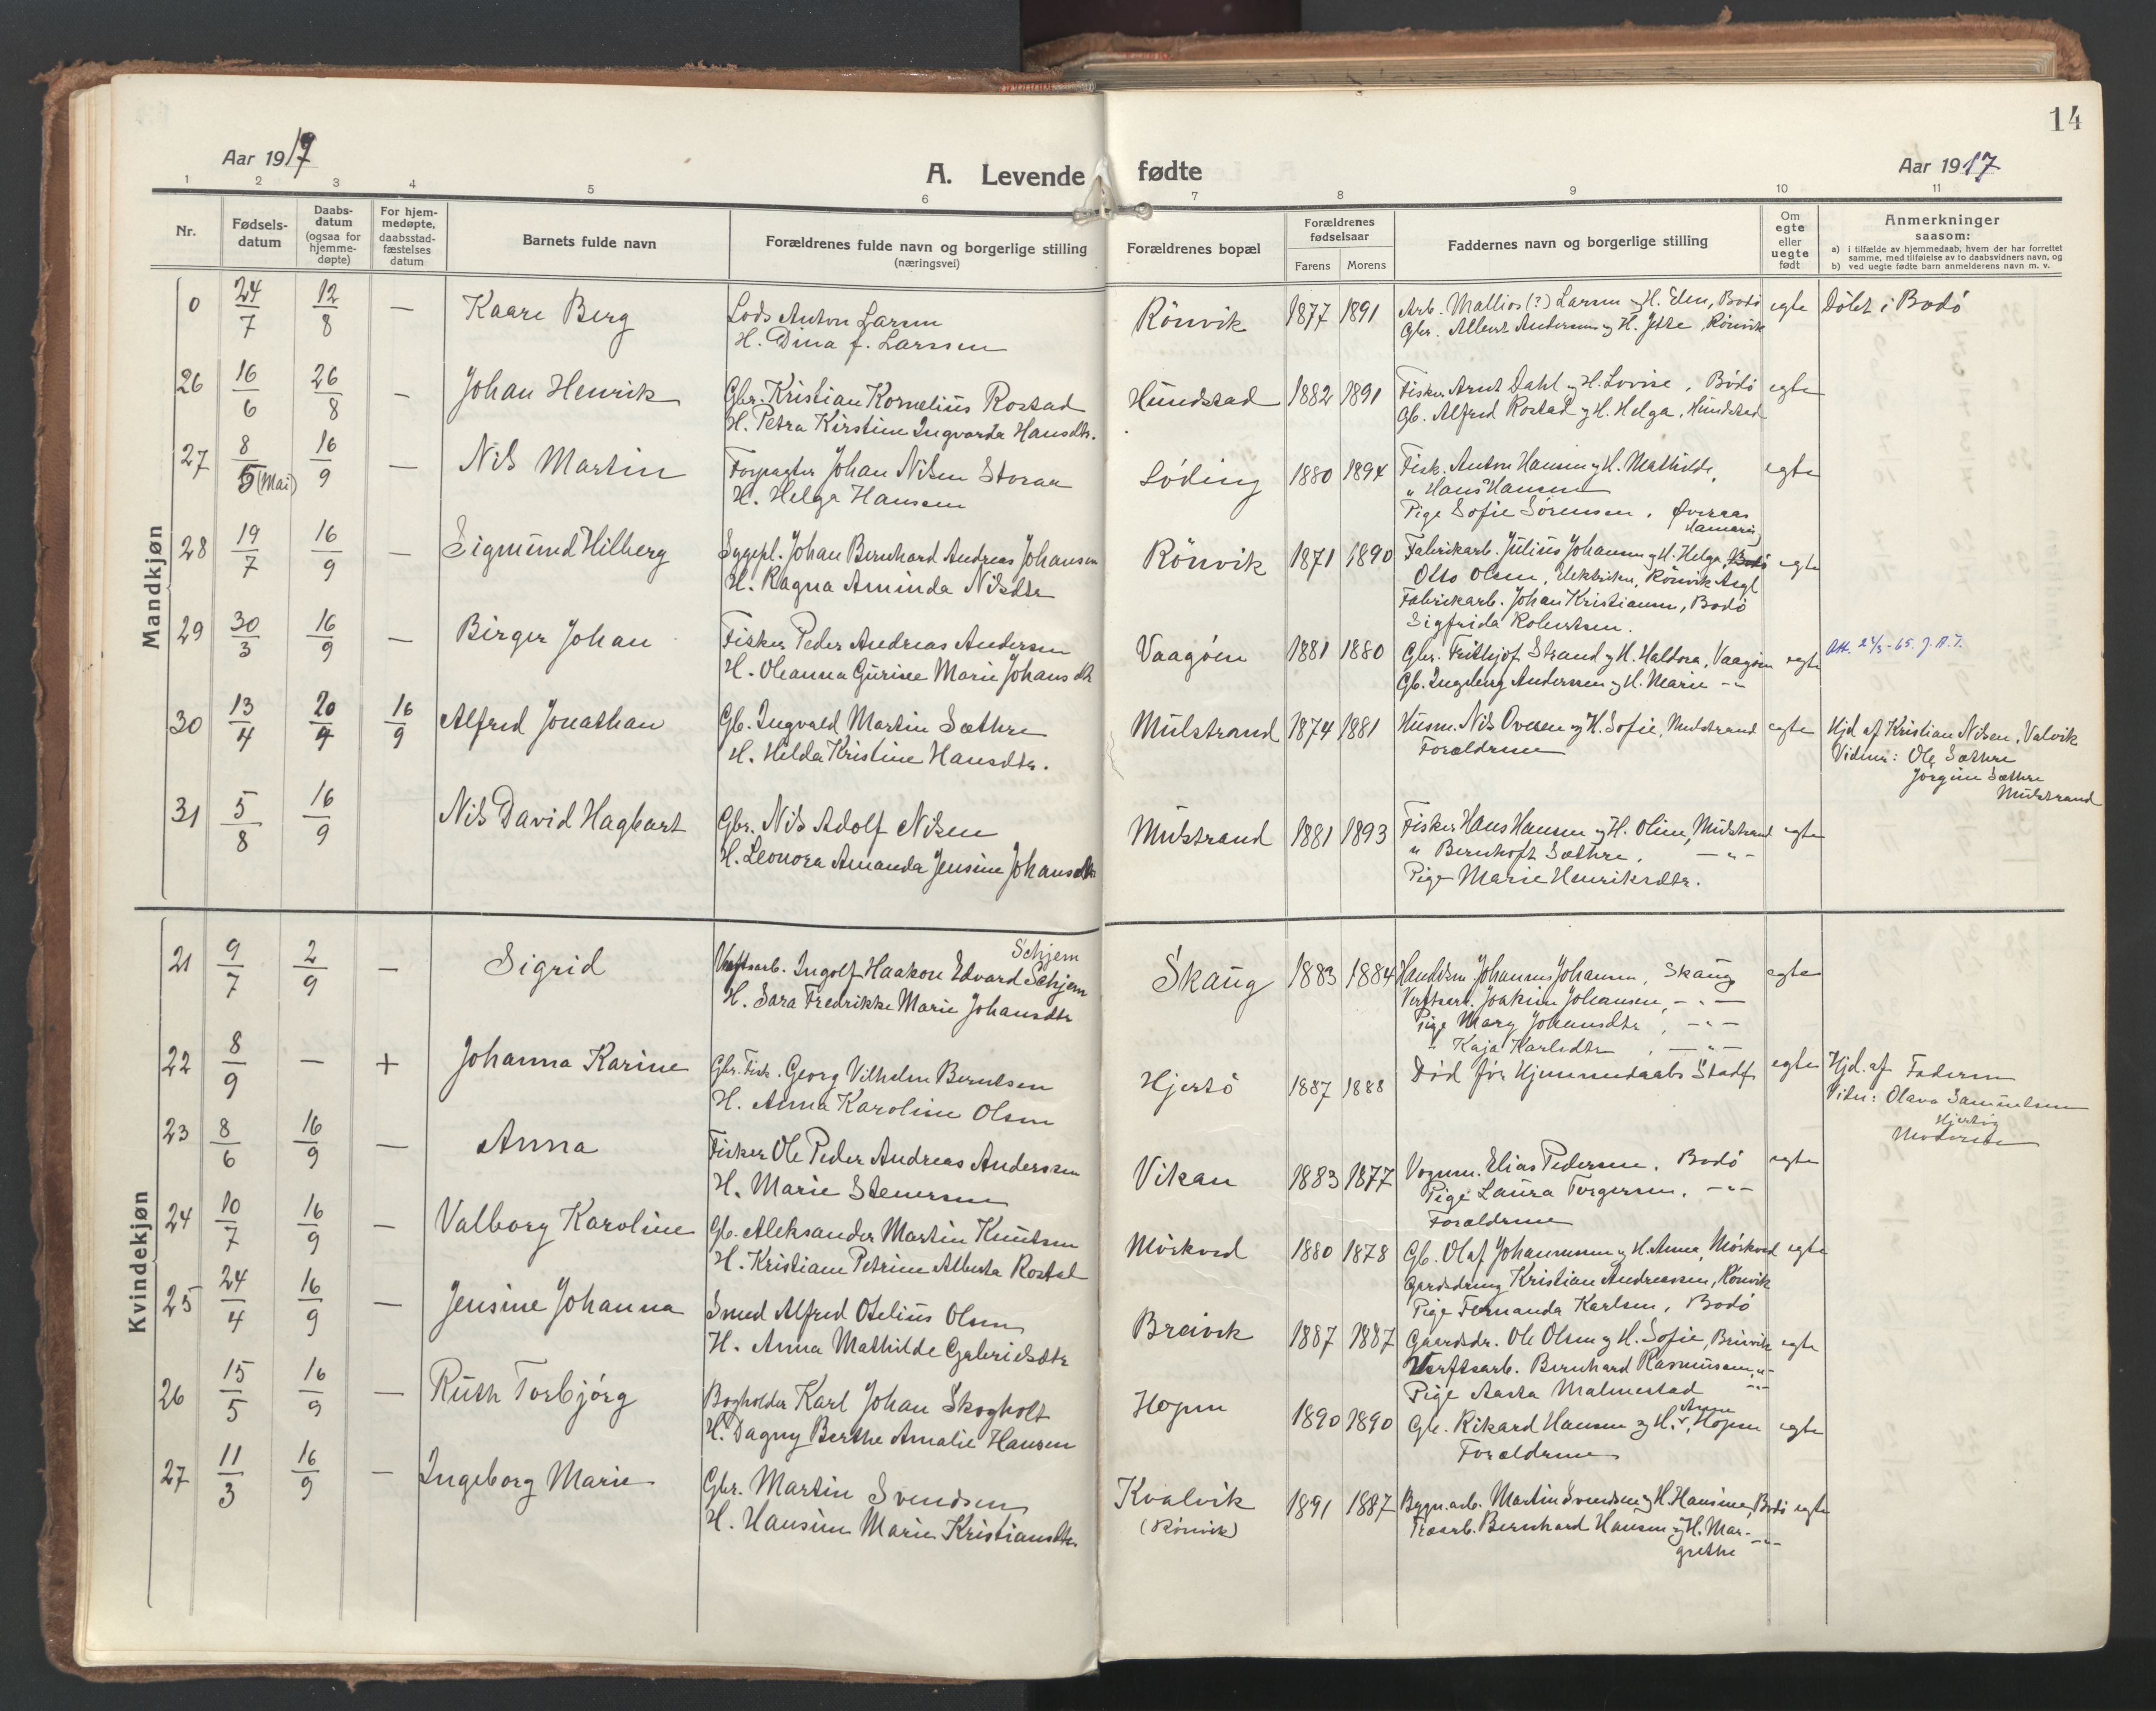 14
Aar 1917
A. Levende fødte
Aar 1917
1 2 3 4 5 6 7 8 9 10 11
Nr.
Fødsels-
datum
Daabs-
datum
(ogsaa for
hjemme-
døpte)
For hjem-
medøpte,
daabsstad-
fæstelses
datum
Barnets fulde navn
Forældrenes fulde navn og borgerlige stilling
(næringsvei)
Forældrenes bopæl
Forældrenes
fødselsaar
Farens Morens
Faddernes navn og borgerlige stilling
Om
egte
eller
uegte
født
Anmerkninger
saasom:
a) i tilfælde av hjemmedaab, hvem der har forrettet
samme, med tilføielse av to daabsvidners navn, og
b) ved uegte fødte barn anmelderens navn m. v.
Mandkjøn
0 24/7 12/8 — Kaare Berg
Lods Anton Larsen
H. Dina f. Larssen
Rönvik 1877 1891
Arb. Mallios (?) Larsen og H. Elen, Bodö
Gbr. Albert Andersen og H. Jette, Rönvik
egte Döbt i Bodö
26 16/6 26/8 — Johan Henrik
Gbr. Kristian Kornelius Rostad
H. Petra Kirstine Ingvarda Hansdtr.
Hundstad 1882 1891
Fisker Arnt Dahl og H. Lovise, Bodö
Gb. Alfred Rostad og H. Helga, Hundstad
egte
27 8/5 (Mai) 16/9 — Nils Martin
Forpagter Johan Nilsen Storaa
H. Helga Hansen
Löding 1880 1894
Fisk. Anton Hansen og H. Mathilde,
" Hans Hansen
Pige Sofie Sörensen, Överaas
Hamarøy
egte
28 19/7 16/9 — Sigmund Hilberg
Sygepl. Johan Bernhard Andreas Johansen
H. Ragna Aminda Nilsdtr
Rönvik 1871 1890
Fabrikarb. Julius Johansen og H. Helga, Bodö
Otto Olsen, Elektriker, Rönvik Asyl
Fabrikarb. Johan Kristiansen, Bodö
Sigfrida Robertsen.
egte
29 30/3 16/9 — Birger Johan
Fisker Peder Andreas Andersen
H. Oleanna Gurine Marie Johansdtr
Vaagöen 1881 1880
Gbr. Frithjof Strand og H. Haldora, Vaagöen
Gb. Ingeberg Andersen og H. Marie -"-
egte Att. 24/3-65. J.A.T.
30 13/4 20/4 16/9 Alfred Jonathan
Gb. Ingvald Martin Sæthre
H. Hilda Kristine Hansdtr.
Mulstrand 1874 1881
Husm. Nils Ovesen og H. Sofie, Mulstrand
Forældrene
egte
Hjd af Kristian Nilsen, Valvik
Vidner: Ole Sæthre
Jörgine Sæthre
Mulstrand
31 5/8 16/9 Nils David Hagbart
Gbr. Nils Adolf Nilsen
H. Leonora Amanda Jensine Johansdtr
Mulstrand 1881 1893
Fisker Hans Hansen og H. Oline, Mulstrand
" Bernhoft Sæthre, -"-
Pige Marie Henriksdtr.
egte
Kvindekjøn
21 9/7 2/9 — Sigrid
Schjem
Verftsarb. Ingolf Haakon Edvard Schjem
H. Sara Fredrikke Marie Johansdtr
Skaug 1883 1884
Handelsm Johannes Johansen, Skaug
Verftsarb. Joakim Johansen, -"-
Pige Mary Johansdtr, -"-
" Kaja Karlsdtr, -"-
egte
22 8/9 — + Johanna Karine
Gbr. Fisk. Georg Vilhelm Berntsen
H. Anna Karoline Olsen
Hjertö 1887 1888
Död för Hjemmedaabs Stadf
egte
Hjd. af Faderen
Vidn: Olava Samuelsen
Hjertöy
Moderen
23 8/6 16/9 — Anna
Fisker Ole Peder Andreas Anderssen
H. Marie Stenersen
Vikan 1883 1877
Vognm. Elias Pedersen, Bodö
Pige Laura Torgersen, -"-
Forældrene
egte
24 10/7 16/9 — Valborg Karoline
Gb. Aleksander Martin Knutsen
H. Kristiane Petrine Alberta Rostad
Mörkved 1880 1878
Gb. Olaf Johannesen og H. Anna, Mörkved
Gaardsdreng Kristian Andreassen, Rönvik
Pige Fernanda Karlsen, Bodö
egte
25 24/4 16/9 — Jensine Johanna
Smed Alfred Otelius Olsen
H. Anna Mathilde Gabrielsdtr
Breivik 1887 1887
Gaardsdr. Ole Olsen og H. Sofie, Breivik
Verftsarb. Bernhard Rasmussen, -"-
Pige Aasta Malmestad -"-
egte
26 15/5 16/9 — Ruth Torbjörg
Bogholder Karl Johan Skogholt
H. Dagny Berthe Amalie Hansen
Hopen 1890 1890
Gb. Rikard Hansen og H. Anna, Hopen
Forældrene
egte
27 11/3 16/9 — Ingeborg Marie
Gbr. Martin Svendsen
H. Hansine Marie Kristiansdtr
Kvalvik
(Rönvik)
1891 1887
Bygn.arb. Martin Svendsen og H. Hansine, Bodö
Træarb. Bernhard Hansen og H. Mar-
grethe -"-
egte